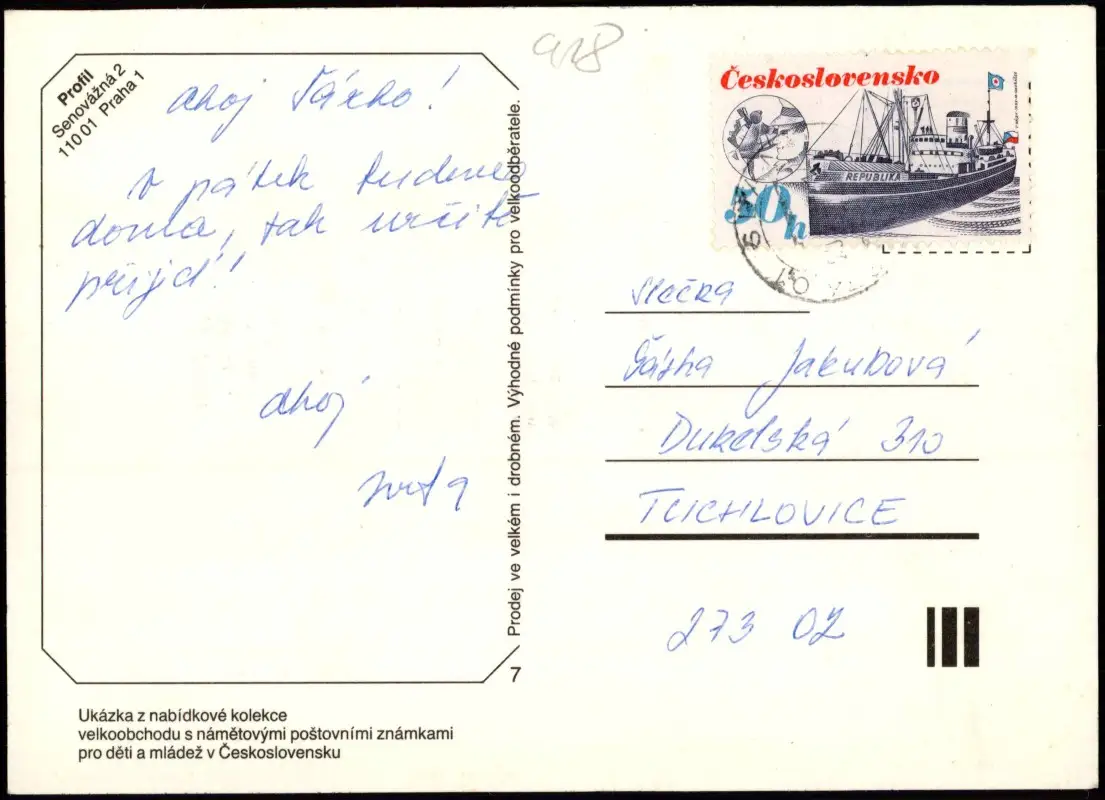 Profil
Senovážná 2
110 01 Praha 1
918
ahoj Šárko!
v pátek budeme
doma, tak určitě
přijď!
ahoj
Prodej ve velkém i drobném. Výhodné podmínky pro velkoodběratele.
7
Ukázka z nabídkové kolekce
velkoobchodu s námětovými poštovními známkami
pro děti a mládež v Československu
Československo
REPUBLIKA
50h
slečna
Šárka Jakubová
Dukelská 310
TUCHLOVICE
273 02